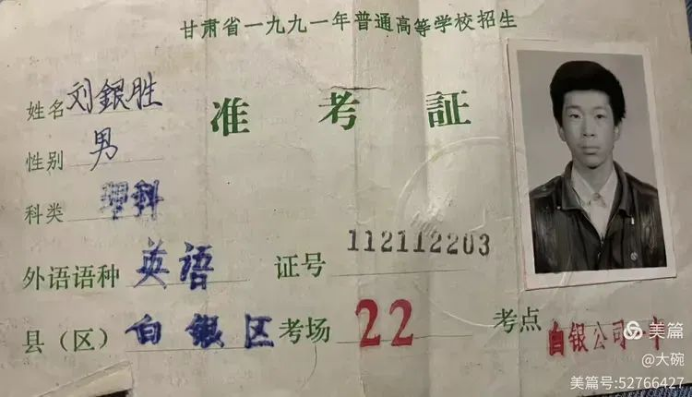 甘肃省一九九一年普通高等学校招生
准考証
姓名 刘銀胜
性别 男
科类 理科
外语语种 英语 证号 112112203
县（区） 白银区 考场 22 考点 白银公司一中
美篇
@大碗
美篇号:52766427